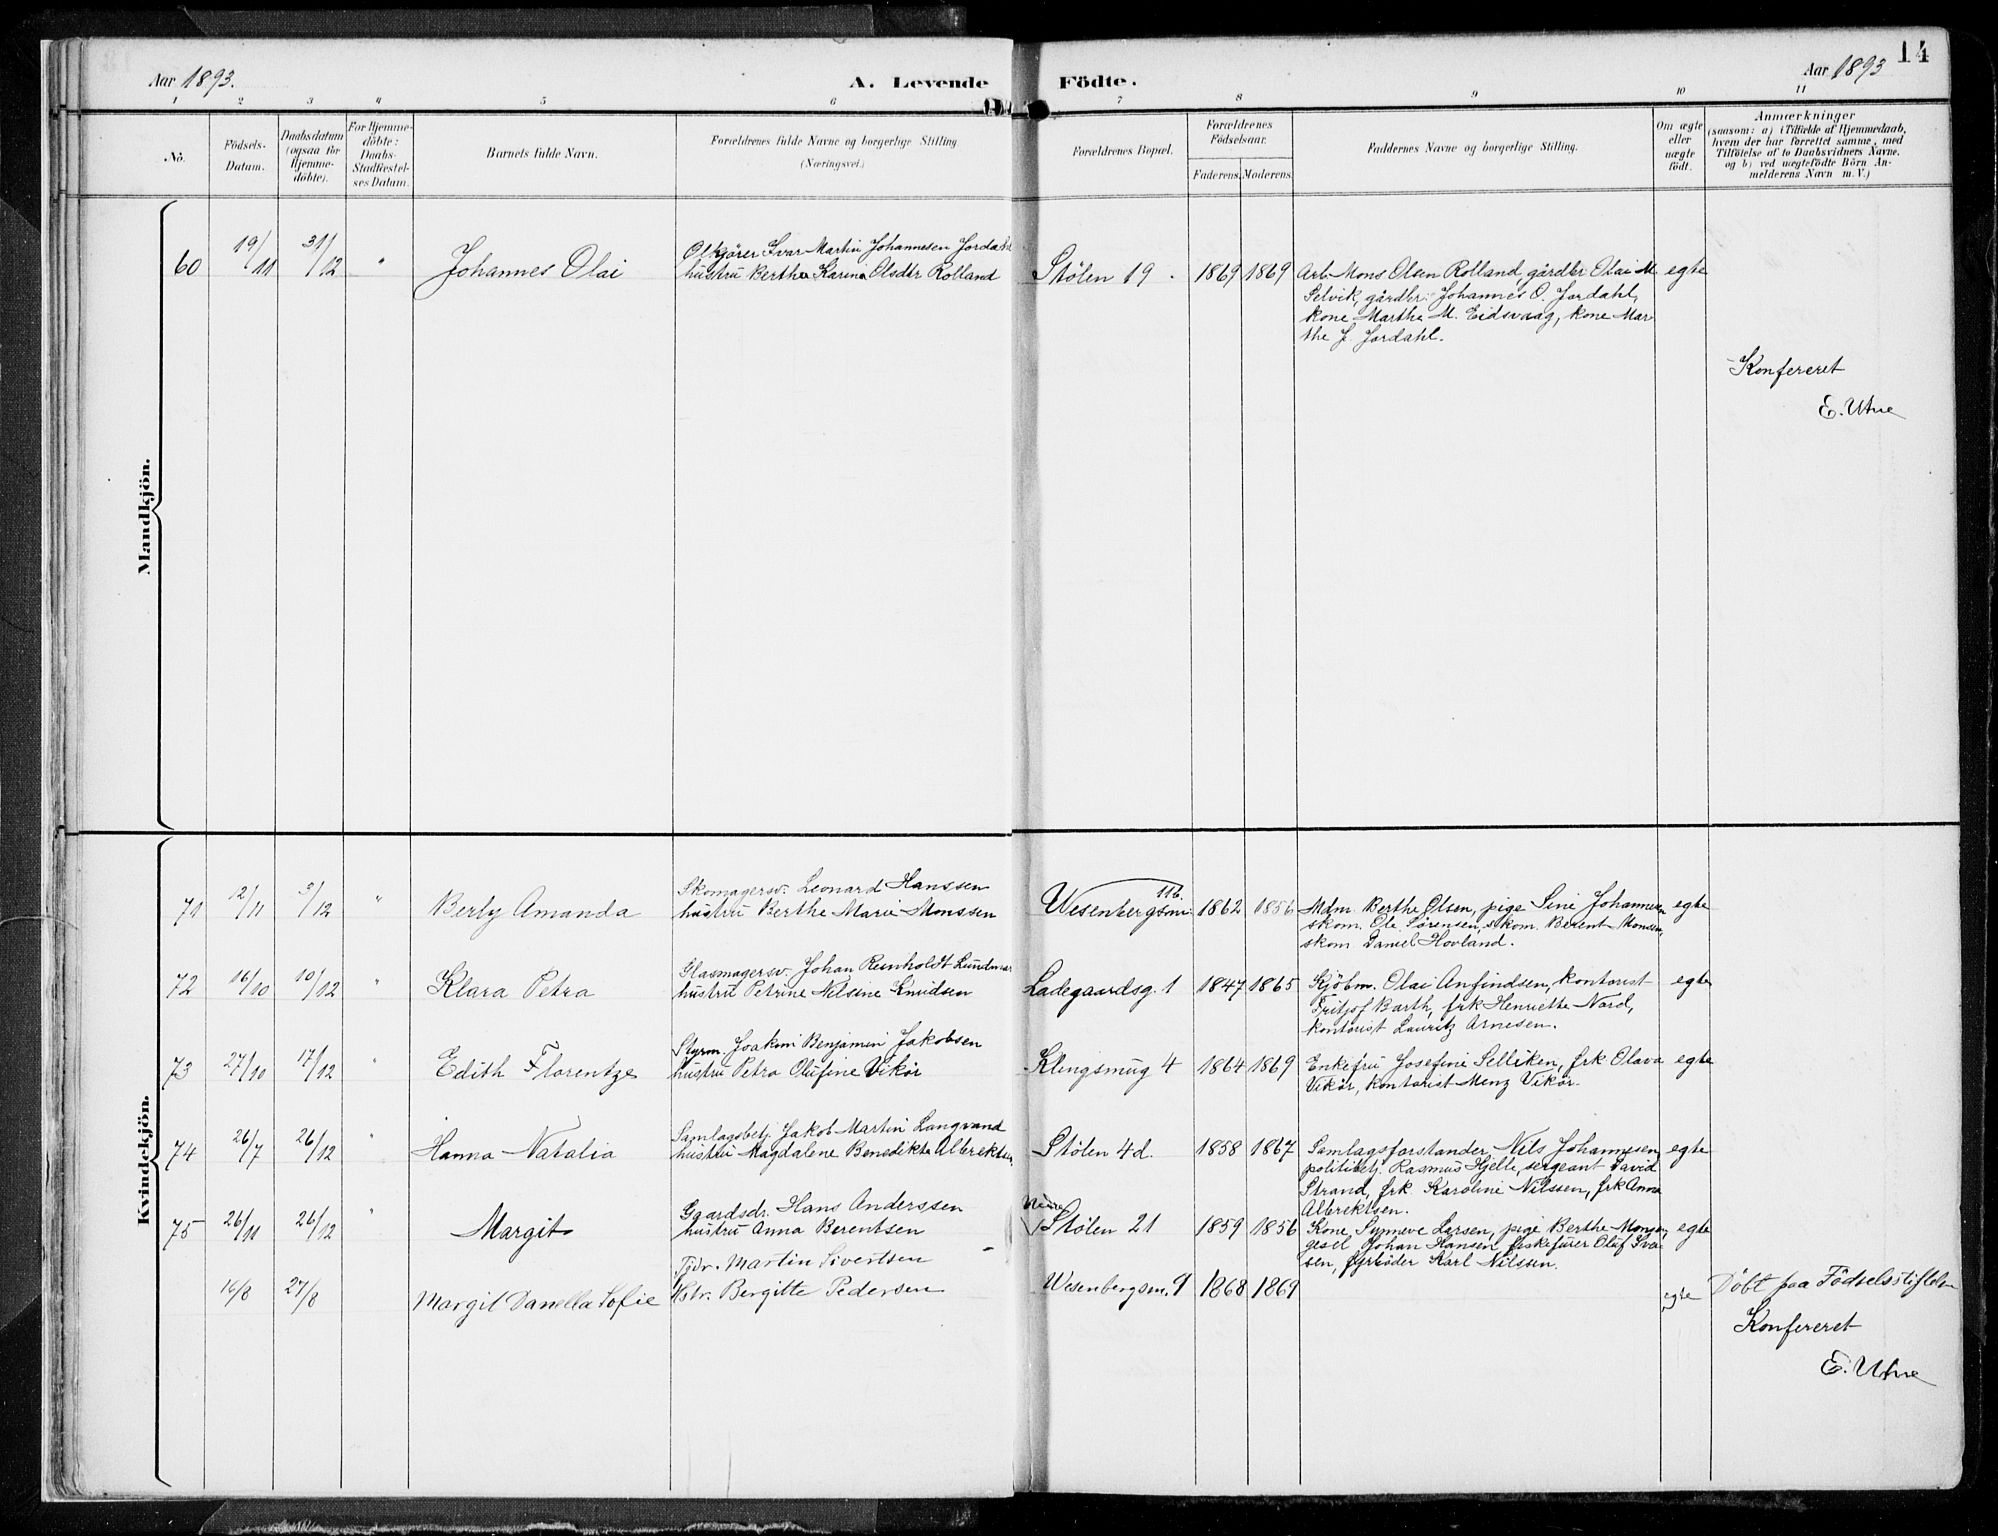 Aar 1893.
A. Levende Födte.
Aar 1893
14
1 2 3 4 5 6 7 8 9 10 11
No.
Födsels-
Datum.
Daabsdatum
(ogsaa for
Hjemme-
döbte).
For Hjemme-
döbte:
Daabs-
Stadfæstel-
ses Datum.
Barnets fulde Navn.
Forældrenes fulde Navne og borgerlige Stilling
(Næringsvei.)
Forældrenes Bopæl.
Forældrenes
Födselsaar.
Faderens. Moderens.
Faddernes Navne og borgerlige Stilling.
Om ægte
eller
uægte
födt.
Anmærkninger
(saasom: a) i Tilfælde af Hjemmedaab,
hvem der har forrettet samme, med
Tilföielse af to Daabsvidners Navne,
og b) ved uægtefödte Börn An-
melderens Navn m. V.)
Mandkjön.
60 19/11 31/12 " Johannes Olai
Ølkjörer Ivar Martin Johannesen Jordahl
hustru Berthe Karina Olsdtr Rolland
Stølen 19. 1869 1869
Arb. Mons Olsen Rolland, gårdbr Olai M
Selvik, gårdbr. Johannes O. Jordahl,
kone Marthe M. Eidsvaag, kone Mar
the J. Jordahl.
egte
Konfereret
E. Utne
Kvindekjön.
71 12/11 3/12 " Berly Amanda
Skomagersv. Leonard Hanssen
hustru Berthe Marie Monssen
Wesenbergsm. 11b. 1862 1856
Mdm. Berthe Olsen, pige Sine Johannesen
skom. Ole Sørensen, skom. Berent Monsen,
skom Daniel Hovland.
egte
72 16/10 10/12 " Klara Petra
Glasmagersv. Johan Reinholdt Lundmar
hustru Petrine Nilsine Knudsen
Ladegaardsg. 1 1847 1865
Kjöbm. Olai Anfindsen, kontorist
Fritjof Barth, frk Henriette Nord,
kontorist Lauritz Arnesen.
egte
73 27/10 17/12 " Edith Florentze
Styrm. Joakim Benjamin Jakobsen
hustru Petra Olufine Vikör
Klengsmug 4 1864 1869
Enkefru Josefine Selliken, frk Olava
Vikör, kontorist Menz Vikör.
egte
74 26/7 26/12 " Hanna Natalia
Samlagsbetj. Jakob Martin Langvand
hustru Magdalene Benedikte Albrektsen
Stølen 4d. 1858 1867
Samlagsforstander Nils Johannesen,
politibetj. Rasmus Hjelle, sergeant David
Strand, frk. Karoline Nilssen, frk Anna
Albrektsen.
egte
75 26/11 26/12 " Margit
Gaardsdr. Hans Anderssen
hustru Anna Berentsen
Stølen 21 1859 1856
Kone Synneve Larsen, pige Berthe Monsen,
gesel Johan Hansen, fiskeförer Oluf Iver
sen, fyrböder Karl Nilssen.
egte
16/8 27/8 Margit Danella Sofie
Tjdr. Martin Sivertsen
Hstr. Bergitte Pedersen
Wesenbergsm. 9 1868 1869
egte
Döbt paa Födselsstiftelsen
Konfereret
E. Utne